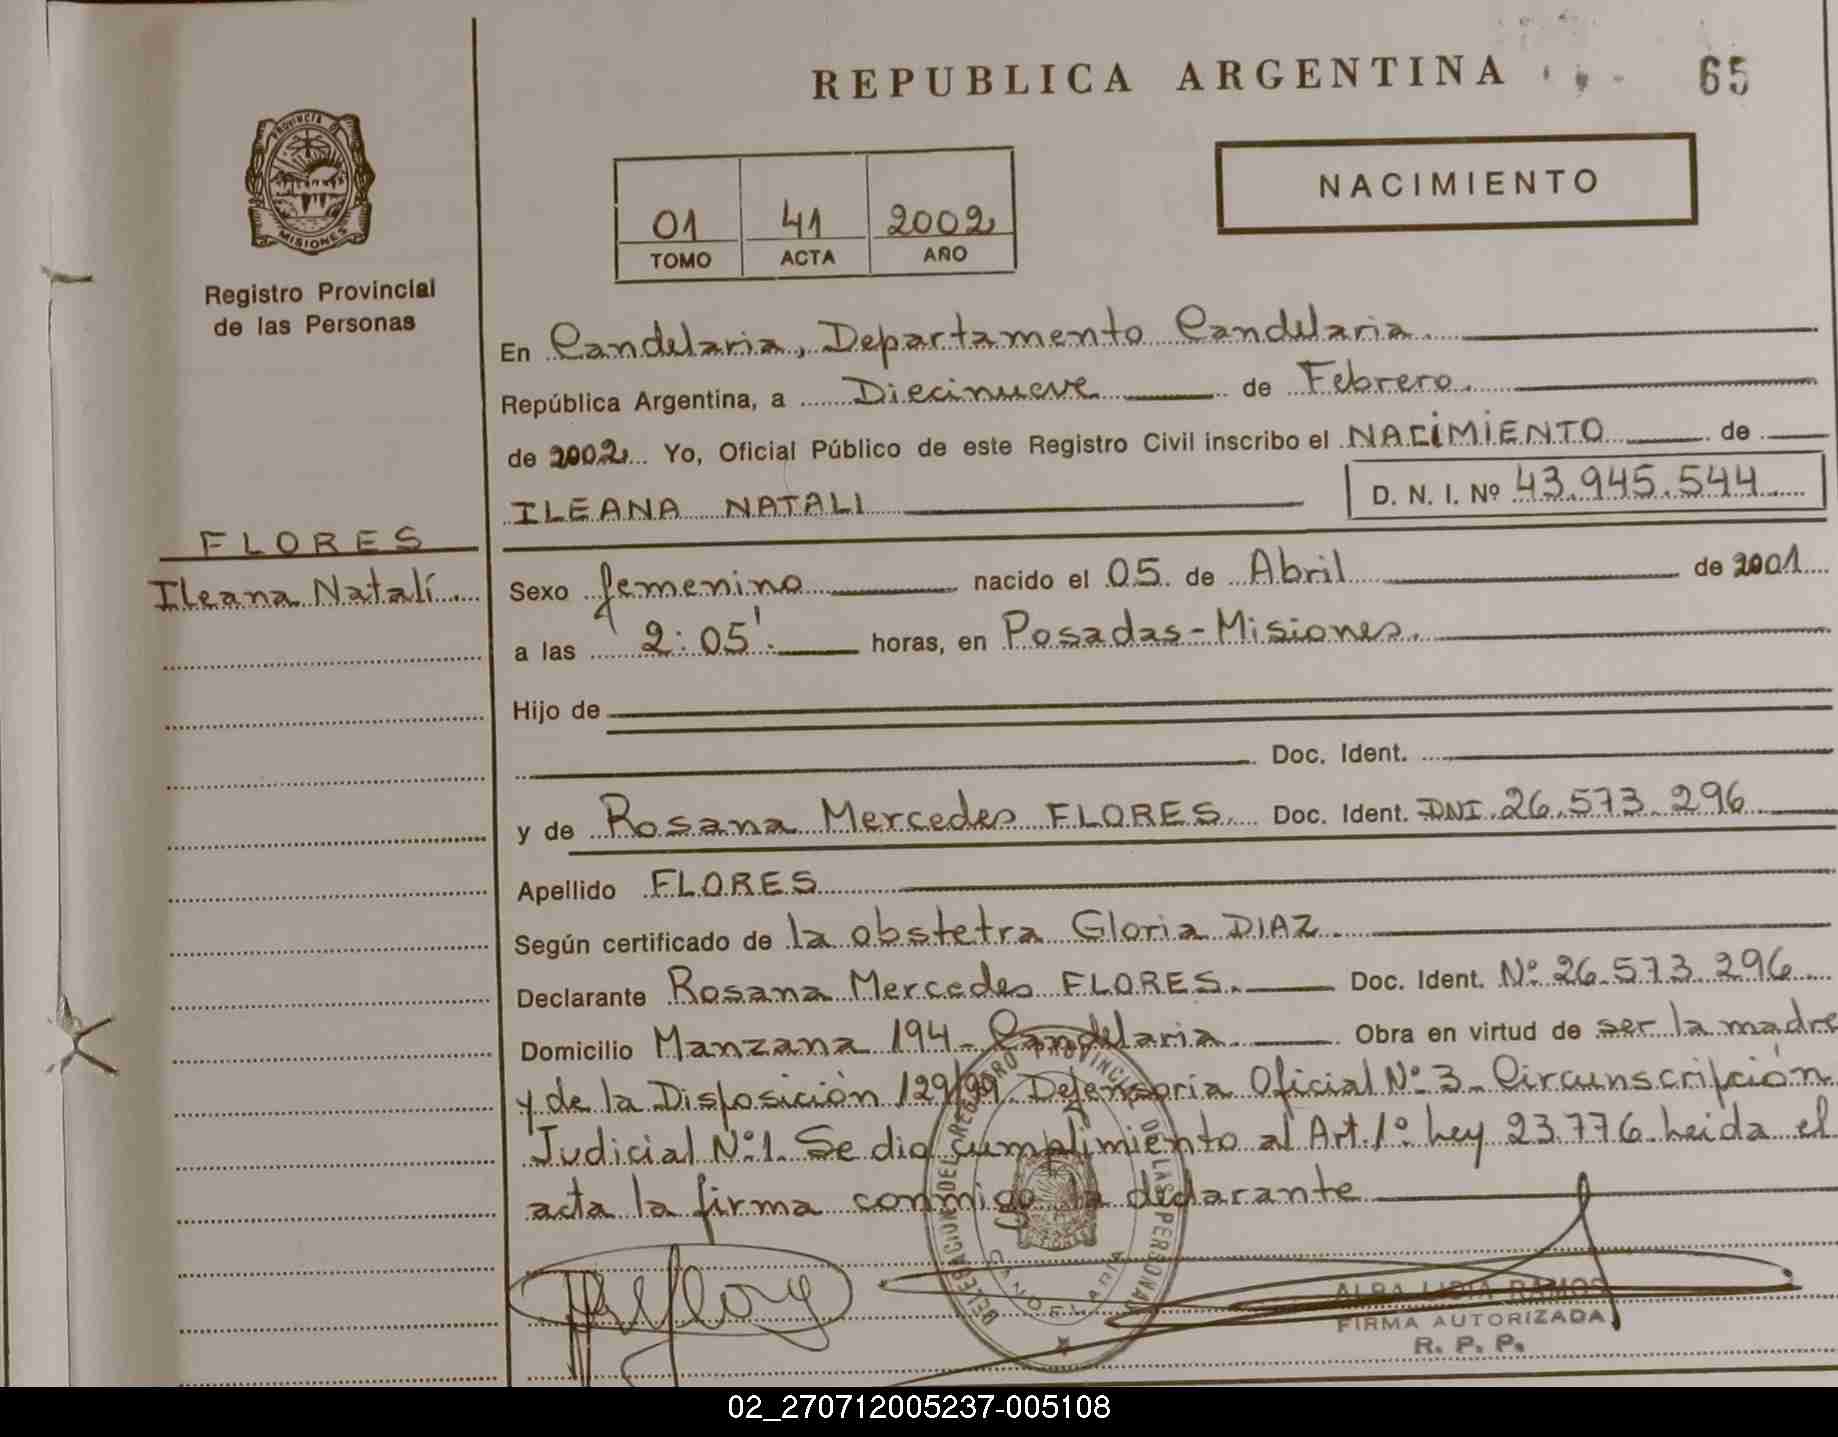 REPUBLICA ARGENTINA
65
PROVINCIA DE
MISIONES
Registro Provincial
de las Personas
01 41 2002
TOMO ACTA AÑO
NACIMIENTO
En Candelaria, Departamento Candelaria.
República Argentina, a Diecinueve de Febrero.
de 2002 Yo, Oficial Público de este Registro Civil inscribo el NACIMIENTO de
ILEANA NATALI D. N. I. Nº 43.945.544
FLORES
Ileana Natalí.
Sexo femenino nacido el 05 de Abril de 2001
a las 2:05'. horas, en Posadas-Misiones.
Hijo de
Doc. Ident.
y de Rosana Mercedes FLORES. Doc. Ident. DNI.26.573.296
Apellido FLORES
Según certificado de la obstetra Gloria DIAZ.
Declarante Rosana Mercedes FLORES. Doc. Ident. Nº 26.573.296
Domicilio Manzana 194- Candelaria. Obra en virtud de ser la madre
y de la Disposición 129/99 Defensoria Oficial Nº 3- Circunscripción
Judicial Nº1. Se dio cumplimiento al Art.1º Ley 23.776. Leida el
acta la firma conmigo la declarante
DELEGACION DEL REGISTRO PROVINCIAL DE LAS PERSONAS
CANDELARIA
ALBA LIDIA RAMOS
FIRMA AUTORIZADA
R. P. P.
02_270712005237-005108